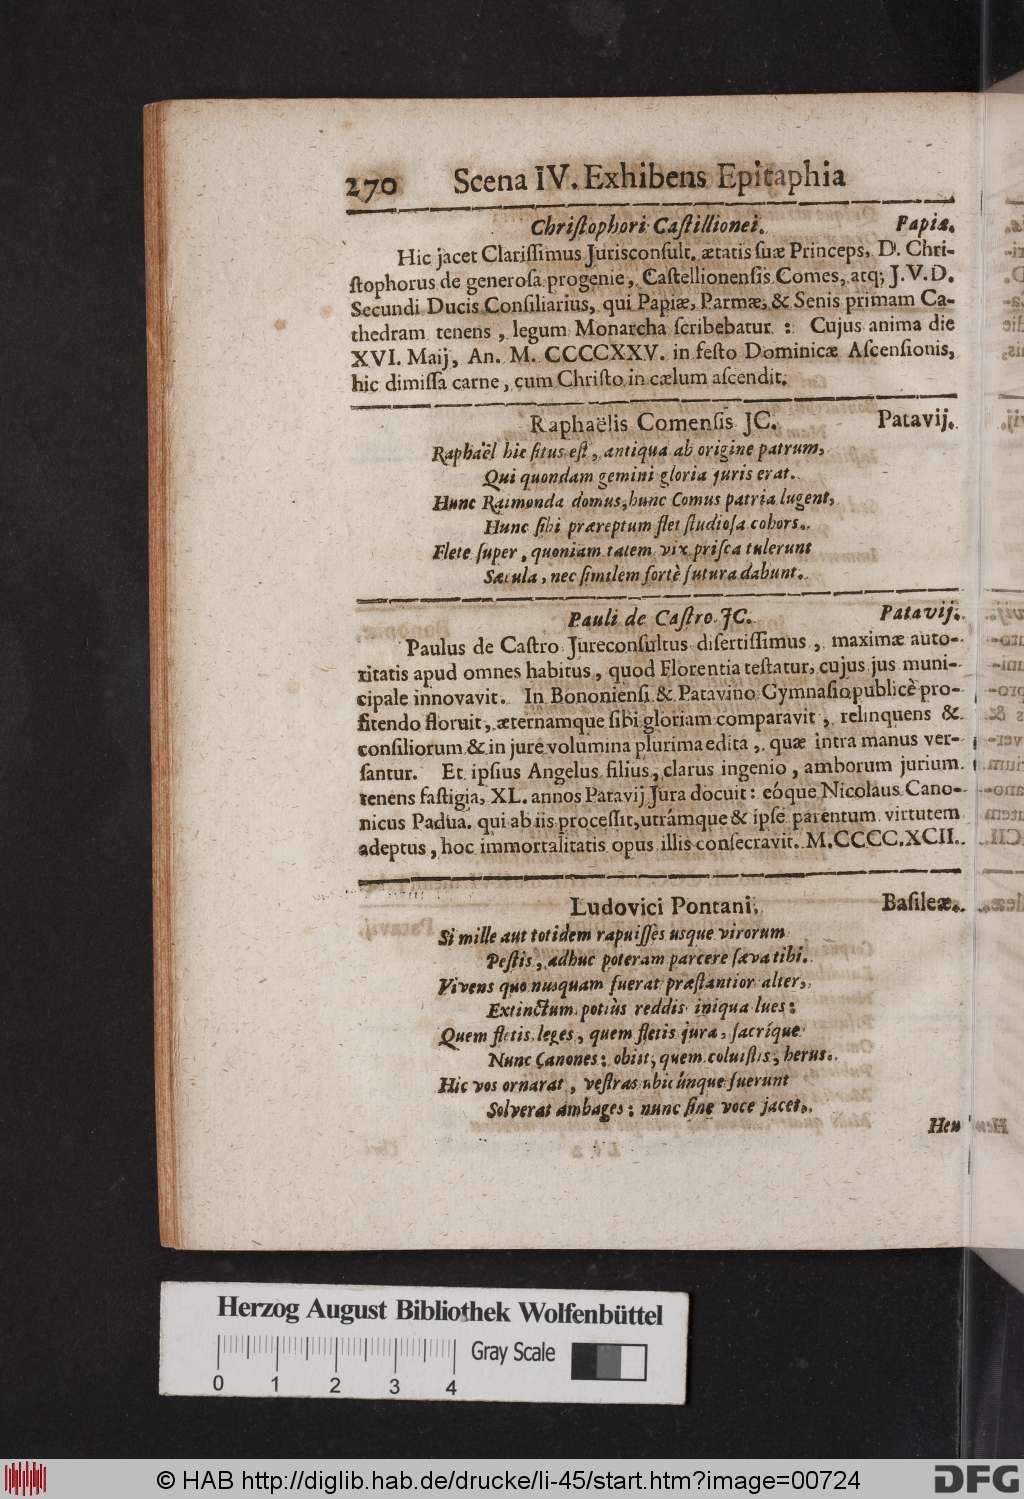 270 Scena IV. Exhibens Epitaphia
Chriſtophori Caſtillionei. Papiæ.
Hic jacet Clariſſimus Jurisconſult. ætatis ſuæ Princeps, D. Chri-
ſtophorus de generoſa progenie, Caſtellionenſis Comes, atq; J.V.D.
Secundi Ducis Conſiliarius, qui Papiæ, Parmæ, & Senis primam Ca-
thedram tenens, legum Monarcha ſcribebatur: Cujus anima die
XVI. Maij, An. M. CCCCXXV. in feſto Dominicæ Aſcenſionis,
hic dimiſſa carne, cum Chriſto in cælum aſcendit.
Raphaëlis Comenſis JC. Patavij.
Raphaël hic ſitus eſt, antiqua ab origine patrum,
Qui quondam gemini gloria juris erat.
Hunc Raimonda domus, hunc Comus patria lugent,
Hunc ſibi præreptum flet ſtudioſa cohors.
Flete ſuper, quoniam talem vix priſca tulerunt
Sæcula, nec ſimilem fortè futura dabunt.
Pauli de Caſtro JC. Patavij.
Paulus de Caſtro Jureconſultus diſertiſſimus, maximæ auto-
ritatis apud omnes habitus, quod Florentia teſtatur, cujus jus muni-
cipale innovavit. In Bononienſi & Patavino Gymnaſio publicè pro-
fitendo floruit, æternamque ſibi gloriam comparavit, relinquens &
conſiliorum & in jure volumina plurima edita, quæ intra manus ver-
ſantur. Et ipſius Angelus filius, clarus ingenio, amborum jurium
tenens faſtigia, XL. annos Patavij Jura docuit: eóque Nicolaus Cano-
nicus Padua. qui ab iis proceſſit, utrámque & ipſe parentum virtutem
adeptus, hoc immortalitatis opus illis conſecravit. M.CCCC.XCII.
Ludovici Pontani. Baſileæ.
Si mille aut totidem rapuiſſes usque virorum
Peſtis, adhuc poteram parcere ſæva tibi.
Vivens quo nusquam fuerat præſtantior alter,
Extinctum potiùs reddis iniqua lues:
Quem fletis leges, quem fletis jura, ſacríque
Nunc Canones: obiit, quem coluiſtis, herus.
Hic vos ornarat, veſtras ubicúnque fuerunt
Solverat ambages: nunc ſine voce jacet.
Hen
Herzog August Bibliothek Wolfenbüttel
Gray Scale
0 1 2 3 4
© HAB http://diglib.hab.de/drucke/li-45/start.htm?image=00724
DFG